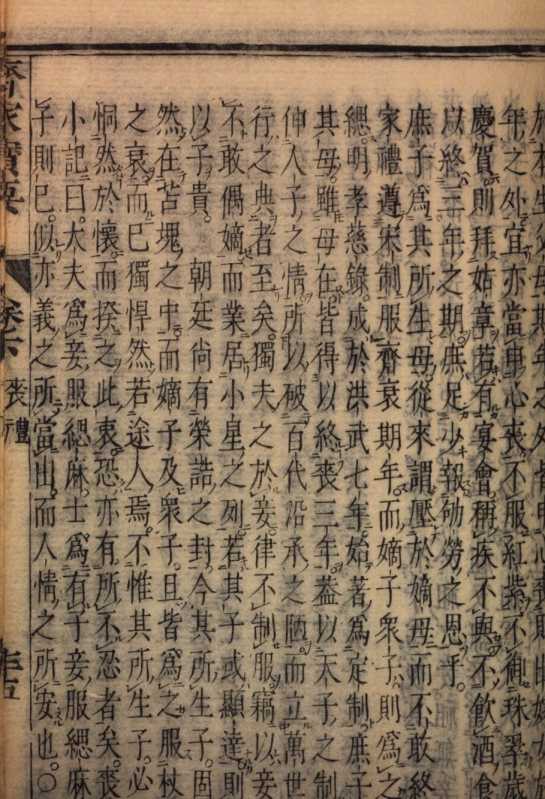 於本生父母期年之外皆申心喪則出嫁女於
年之外宜亦當申心喪不服紅紫不御珠翠歲
慶賀則拜姑章若有宴會稱疾不與不飲酒食
以終三年之期庶足少報劬勞之恩乎
庶子為其所生母從來謂壓於嫡母而不敢終
家禮遵宋制服齊衰期年而嫡子眾子則為之
緦明孝慈錄成於洪武七年始著為定制庶子
其母雖母在皆得以終喪三年葢以天子之制
伸人子之情所以破百代沿承之陋而立萬世
行之典者至矣獨夫之於妾律不制服竊以妾
不敢偶嫡而業居小星之列若其子或顯達則
以子貴 朝廷尚有榮誥之封今其所生子固
然在苫塊之中而嫡子及眾子且皆為之服杖
之衰而巳獨悍然若途人焉不惟其所生子必
恫然於懷而揆之此衷恐亦有所不忍者矣喪
小記曰大夫為妾服緦麻士為有子妾服緦麻
子則巳似亦義之所當出而人情之所安也○
齊家寶要 卷下 喪禮